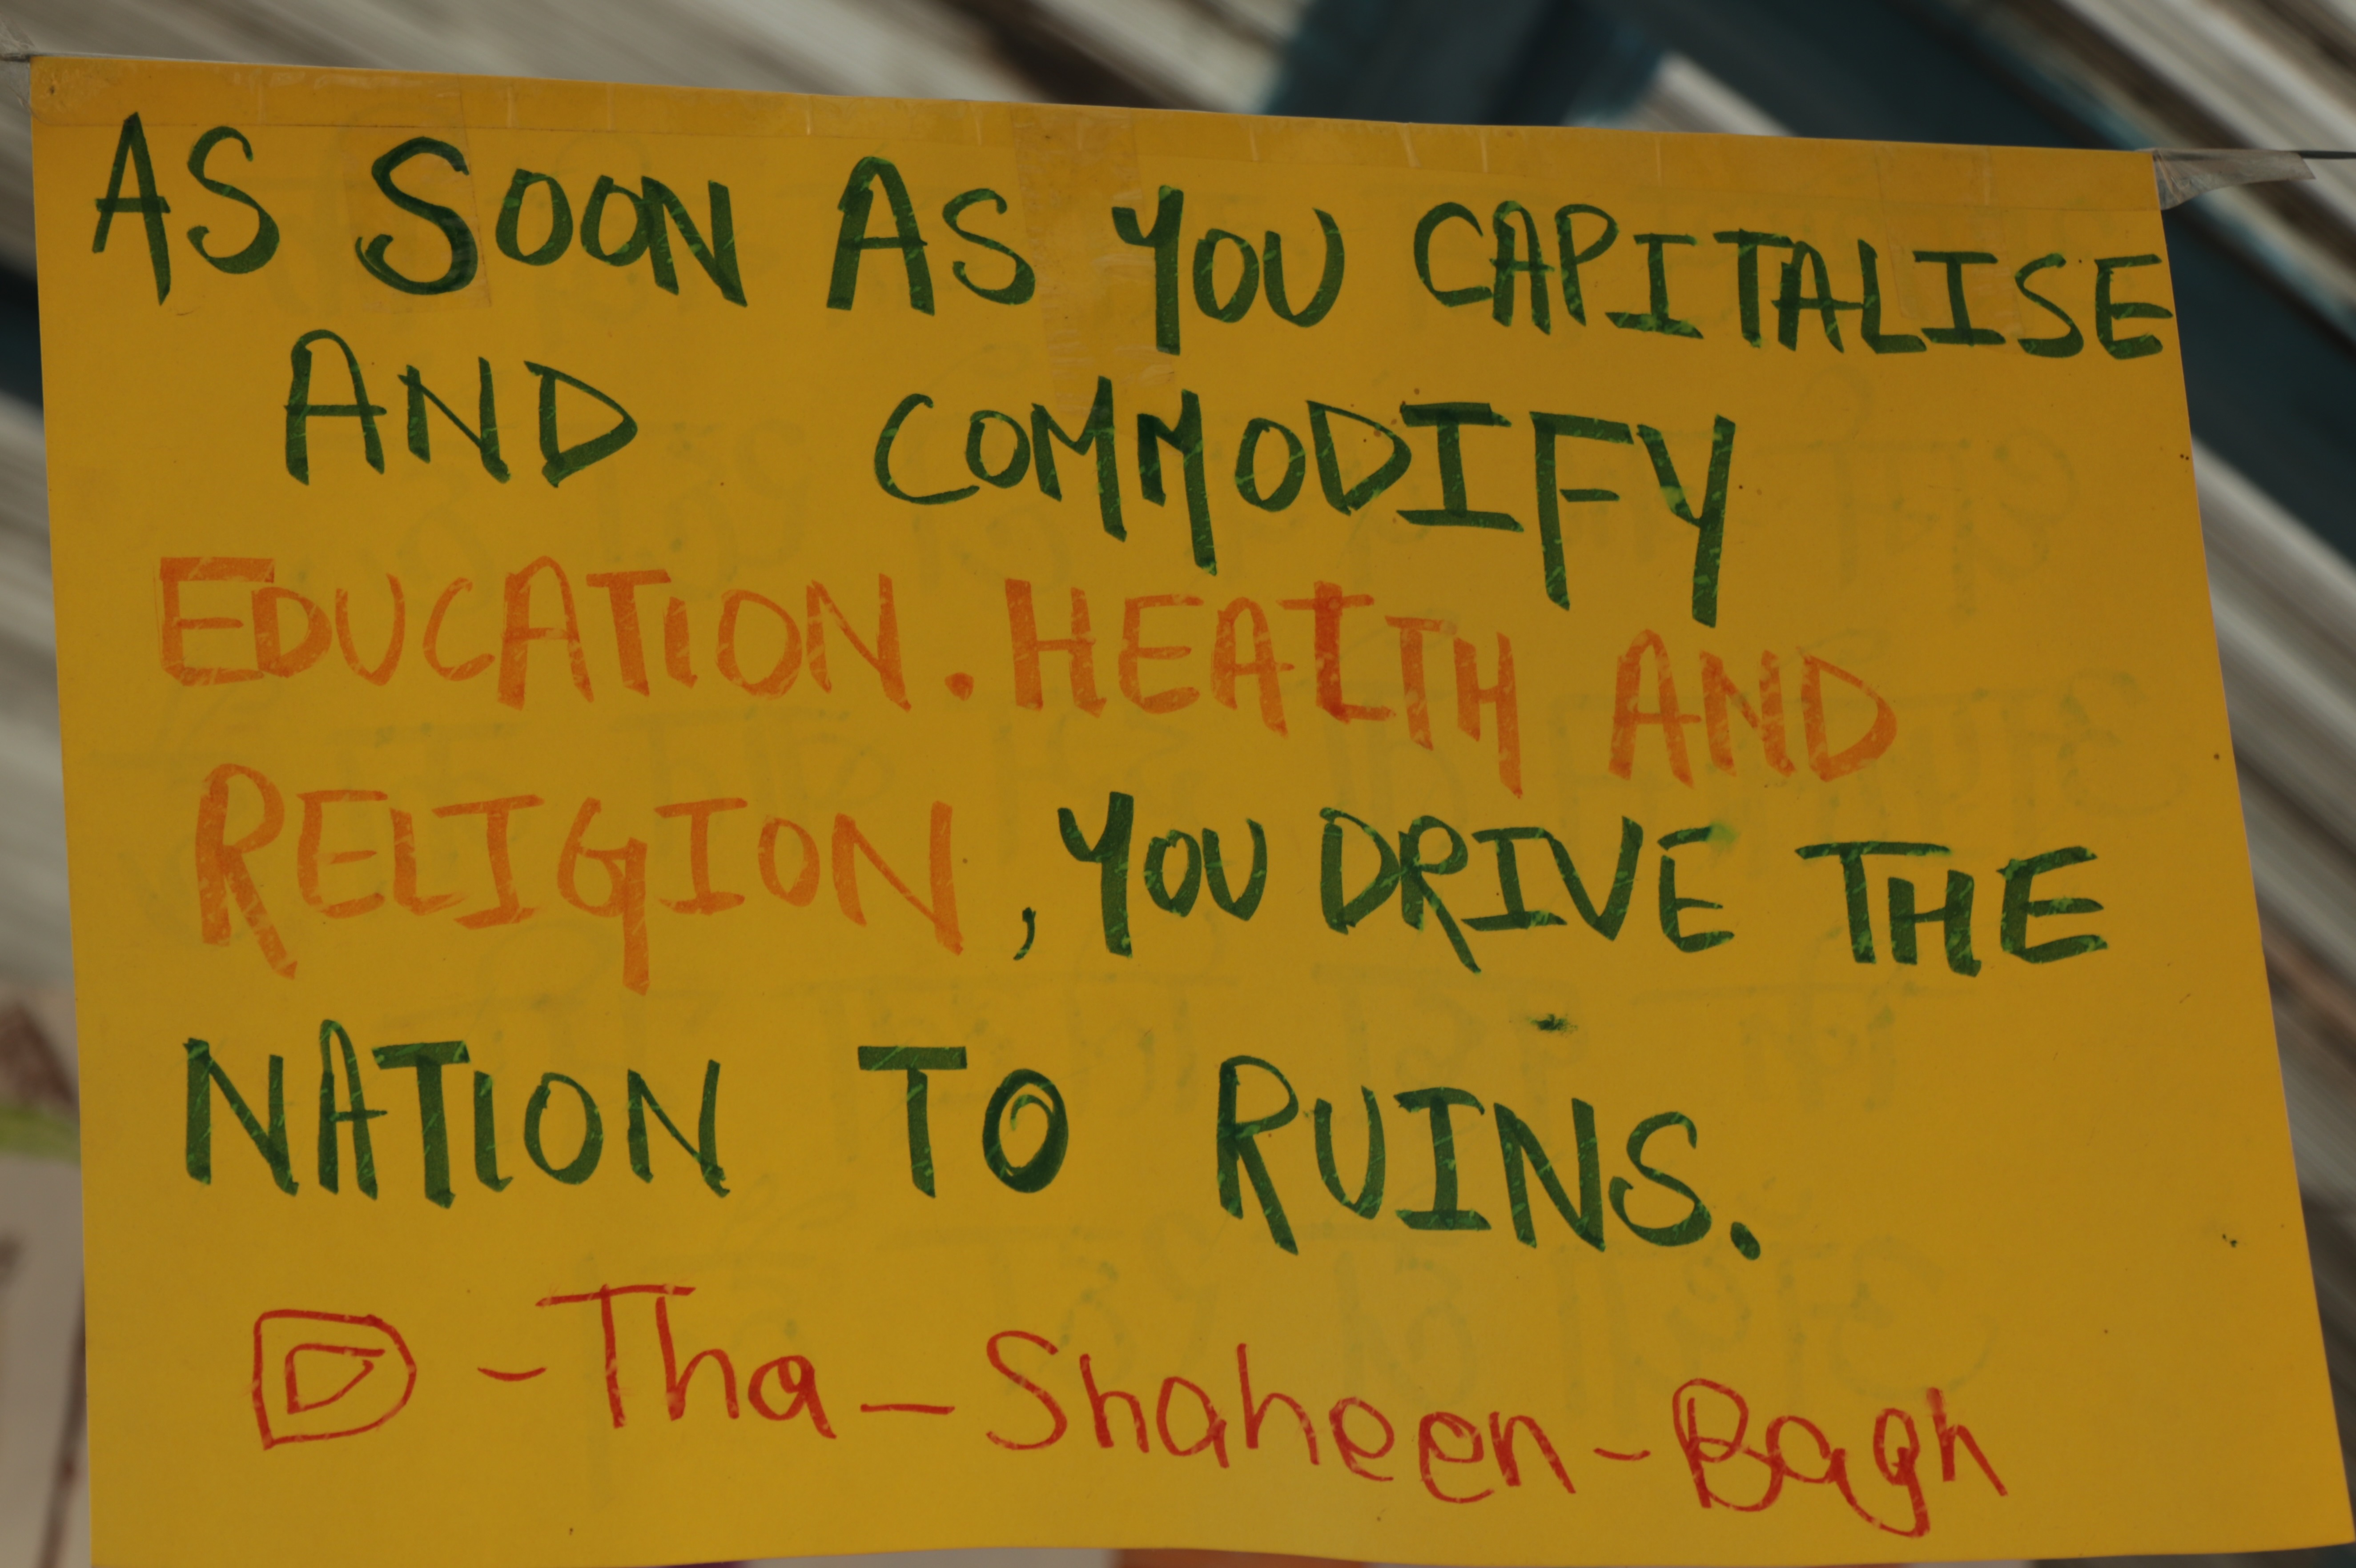 AS SOON AS YOU CAPITALISE
AND COMMODIFY
EDUCATION. HEALTH AND
RELIGION, YOU DRIVE THE
NATION TO RUINS.
-Tha-Shaheen-Bagh